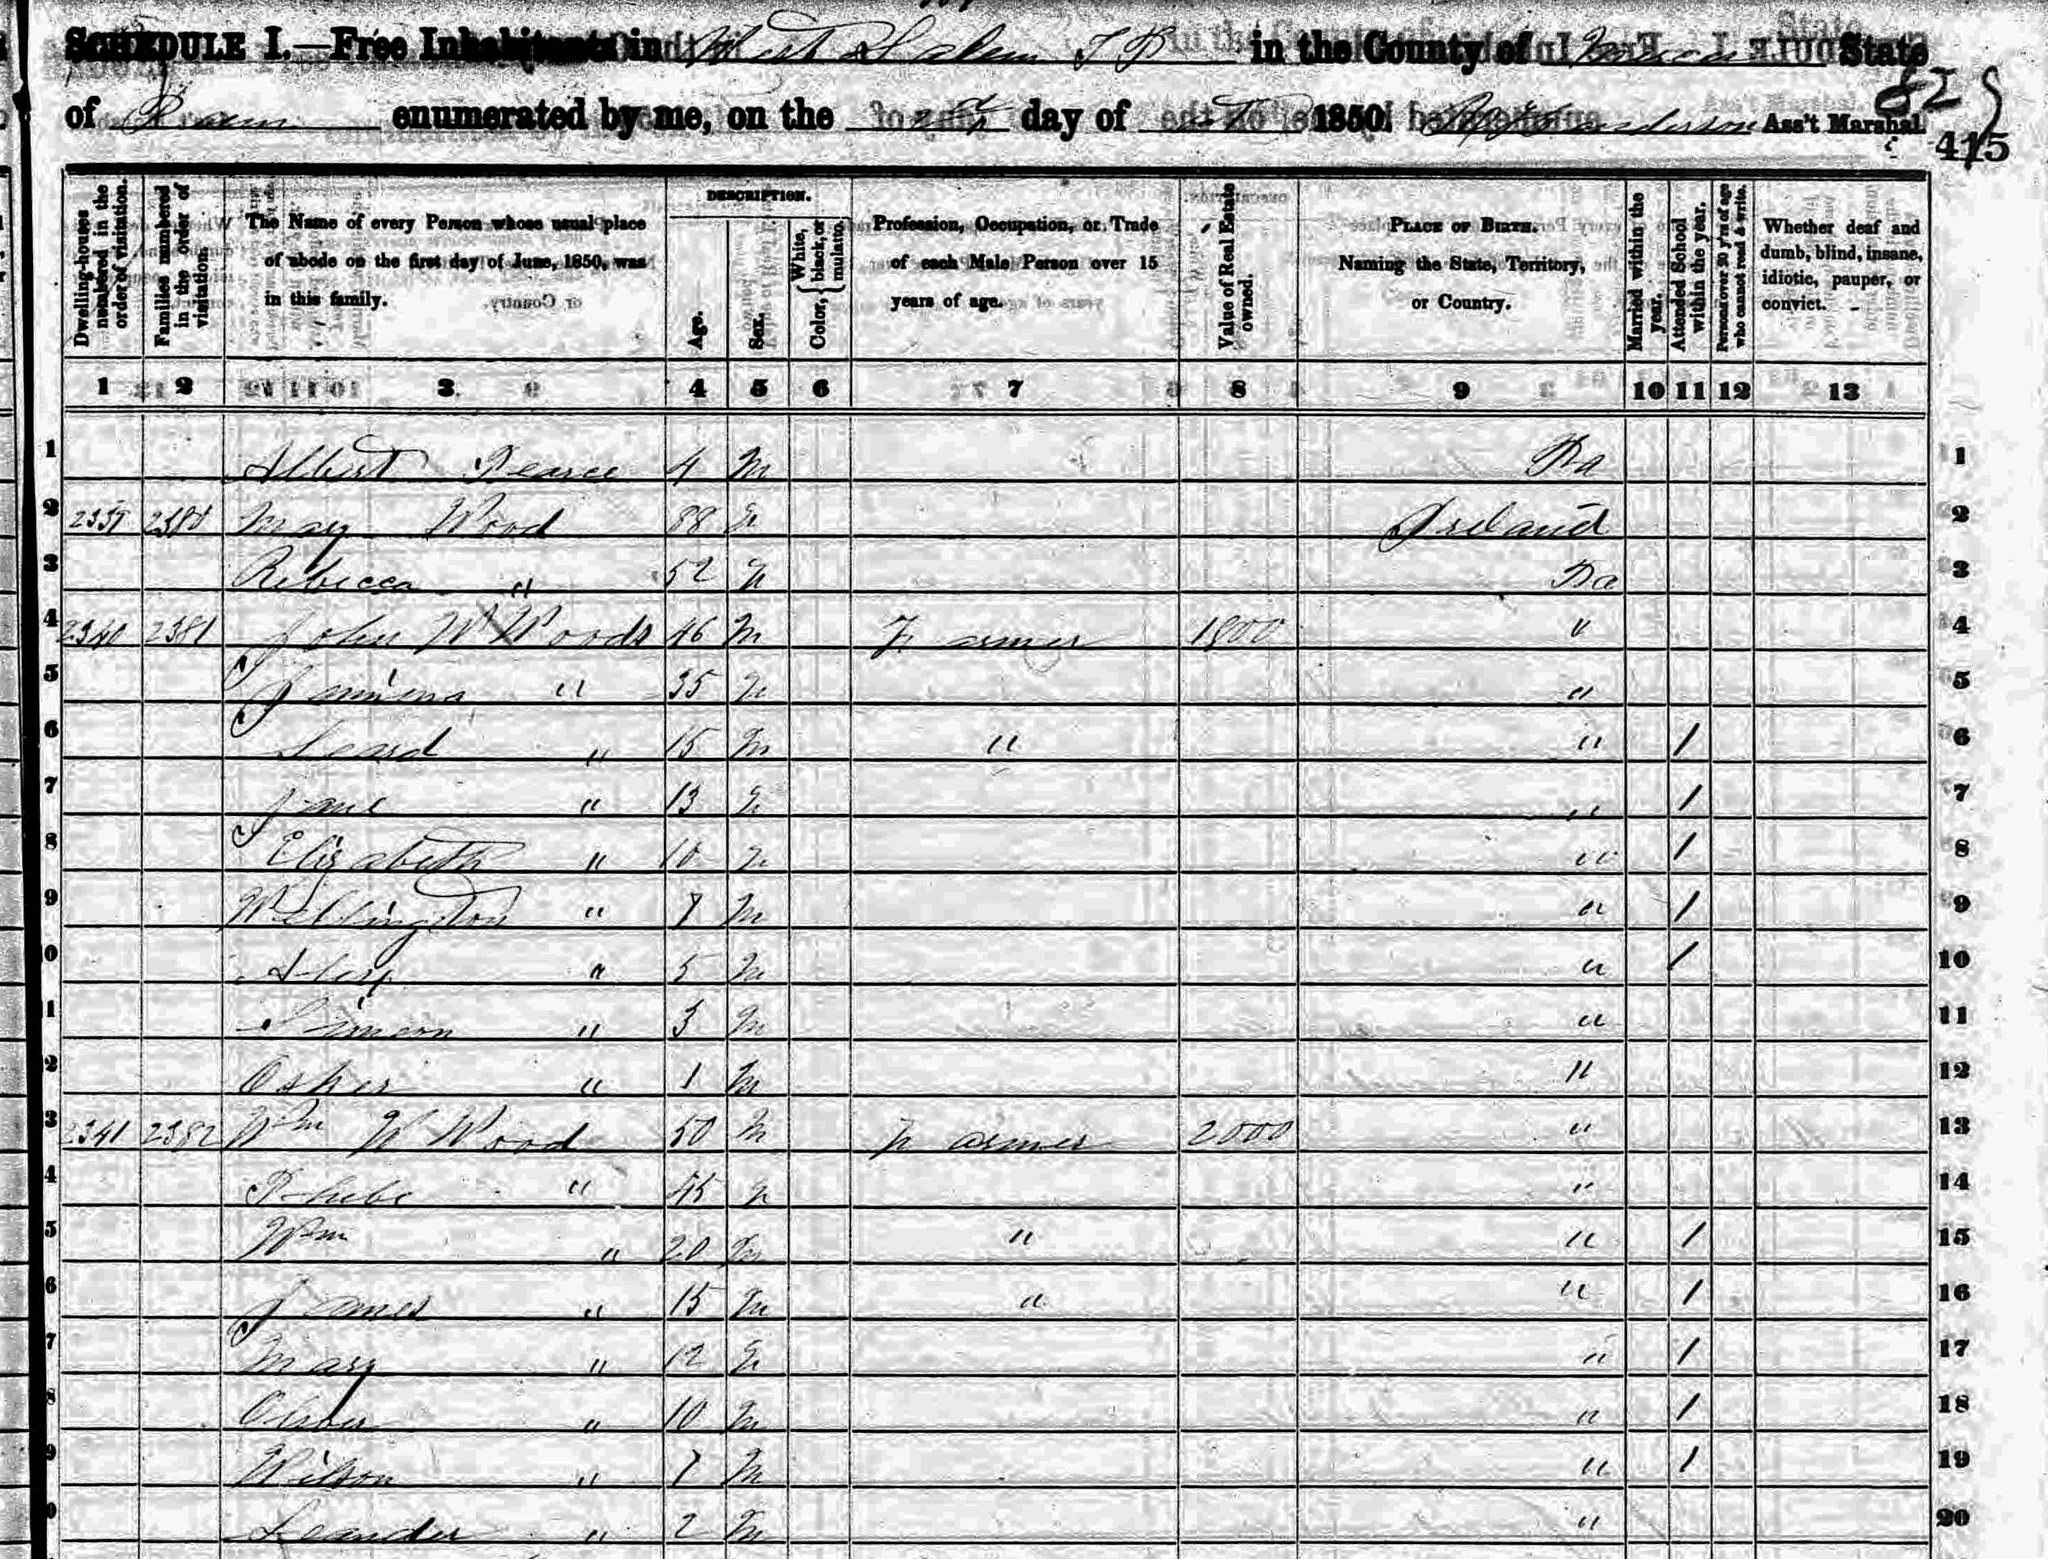 SCHEDULE I.—Free Inhabitants in West Salem T P in the County of Mercer State
of Penn enumerated by me, on the 2d day of 1850. Anderson Ass't Marshal.
415
Dwelling-houses numbered in the order of visitation.
Families numbered in the order of visitation.
The Name of every Person whose usual place of abode on the first day of June, 1850, was in this family.
DESCRIPTION.
Age.
Sex.
Color, { White, black, or mulatto.
Profession, Occupation, or Trade of each Male Person over 15 years of age.
Value of Real Estate owned.
PLACE OF BIRTH. Naming the State, Territory, or Country.
Married within the year.
Attended School within the year.
Persons over 20 y'rs of age who cannot read & write.
Whether deaf and dumb, blind, insane, idiotic, pauper, or convict.
1 2 3 4 5 6 7 8 9 10 11 12 13
1 Albert Pearce 4 M Pa 1
2 2339 2380 Mary Wood 88 F Ireland 2
3 Rebecca " 52 F Pa 3
4 2340 2381 John W Woods 46 M Farmer 1800 " 4
5 Jemima " 35 F " 5
6 Leard " 15 M " " / 6
7 Jane " 13 F " / 7
8 Elizabeth " 10 F " / 8
9 Wellington " 7 M " / 9
10 " 5 M " / 10
11 Simeon " 3 M " 11
12 Osker " 1 M " 12
13 2341 2382 Wm W Wood 50 M Farmer 2000 " 13
14 Phebe " 45 F " 14
15 Wm " 20 M " " / 15
16 James " 15 M " " / 16
17 Mary " 12 F " / 17
18 Oliver " 10 M " / 18
19 Wilson " 7 M " / 19
20 Leander " 2 M " 20